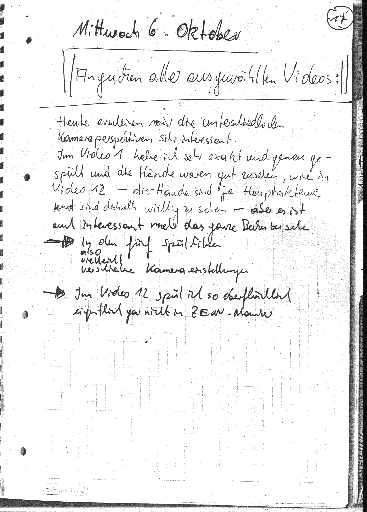 17
Mittwoch 6. Oktober
Angucken aller ausgewählten Videos:
Heute erscheinen mir die unterschiedlichen
Kameraperspektiven sehr interessant.
Im Video 1 habe ich sehr exakt und genau ge-
spült und die Hände waren gut zu sehen, wie in
Video 12 – die Hände sind ja Hauptakteure
und sind deshalb wichtig zu sehen – aber es ist
auch interessant mal das ganze
→ In den fünf Spülfilmen
also
vielleicht
verschiedene Kameraeinstellungen
→ Im Video 12 spül ich so oberflächlich
eigentlich gar nicht in ZEN-Manier